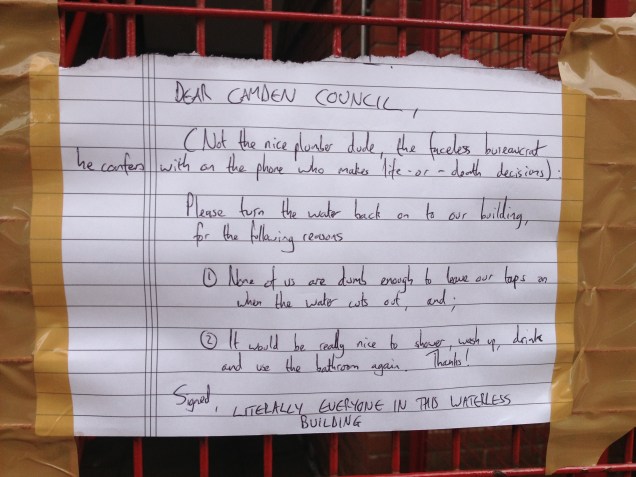 DEAR CAMDEN COUNCIL,
(Not the nice plumber dude, the faceless bureaucrat
he confers with on the phone who makes life-or-death decisions):
Please turn the water back on to our building,
for the following reasons
① None of us are dumb enough to leave our taps on
when the water cuts out, and;
② It would be really nice to shower, wash up, drink
and use the bathroom again. Thanks!
Signed, LITERALLY EVERYONE IN THIS WATERLESS
BUILDING